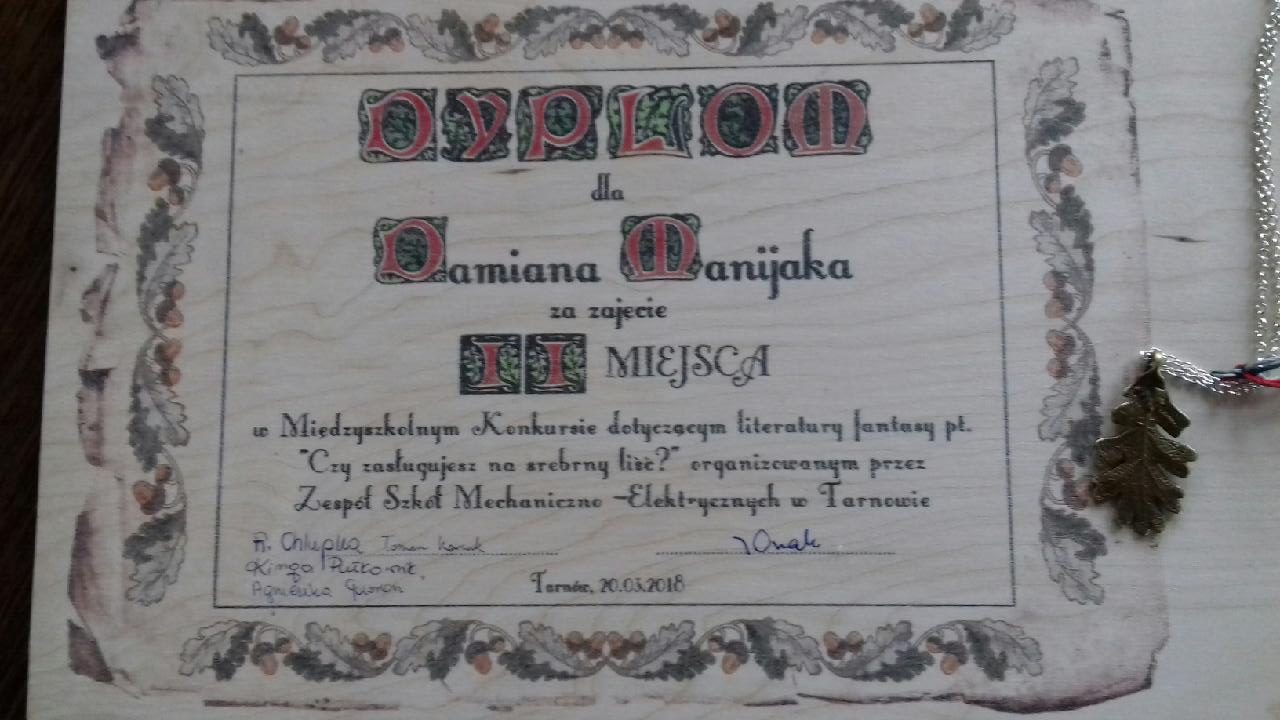 DYPLOM
dla
Damiana Manijaka
za zajęcie
II MIEJSCA
w Międzyszkolnym Konkursie dotyczącym literatury fantasy pt.
"Czy zasługujesz na srebrny liść?" organizowanym przez
Zespół Szkół Mechaniczno-Elektrycznych w Tarnowie
Kinga
Agnieszka
Tarnów, 20.03.2018